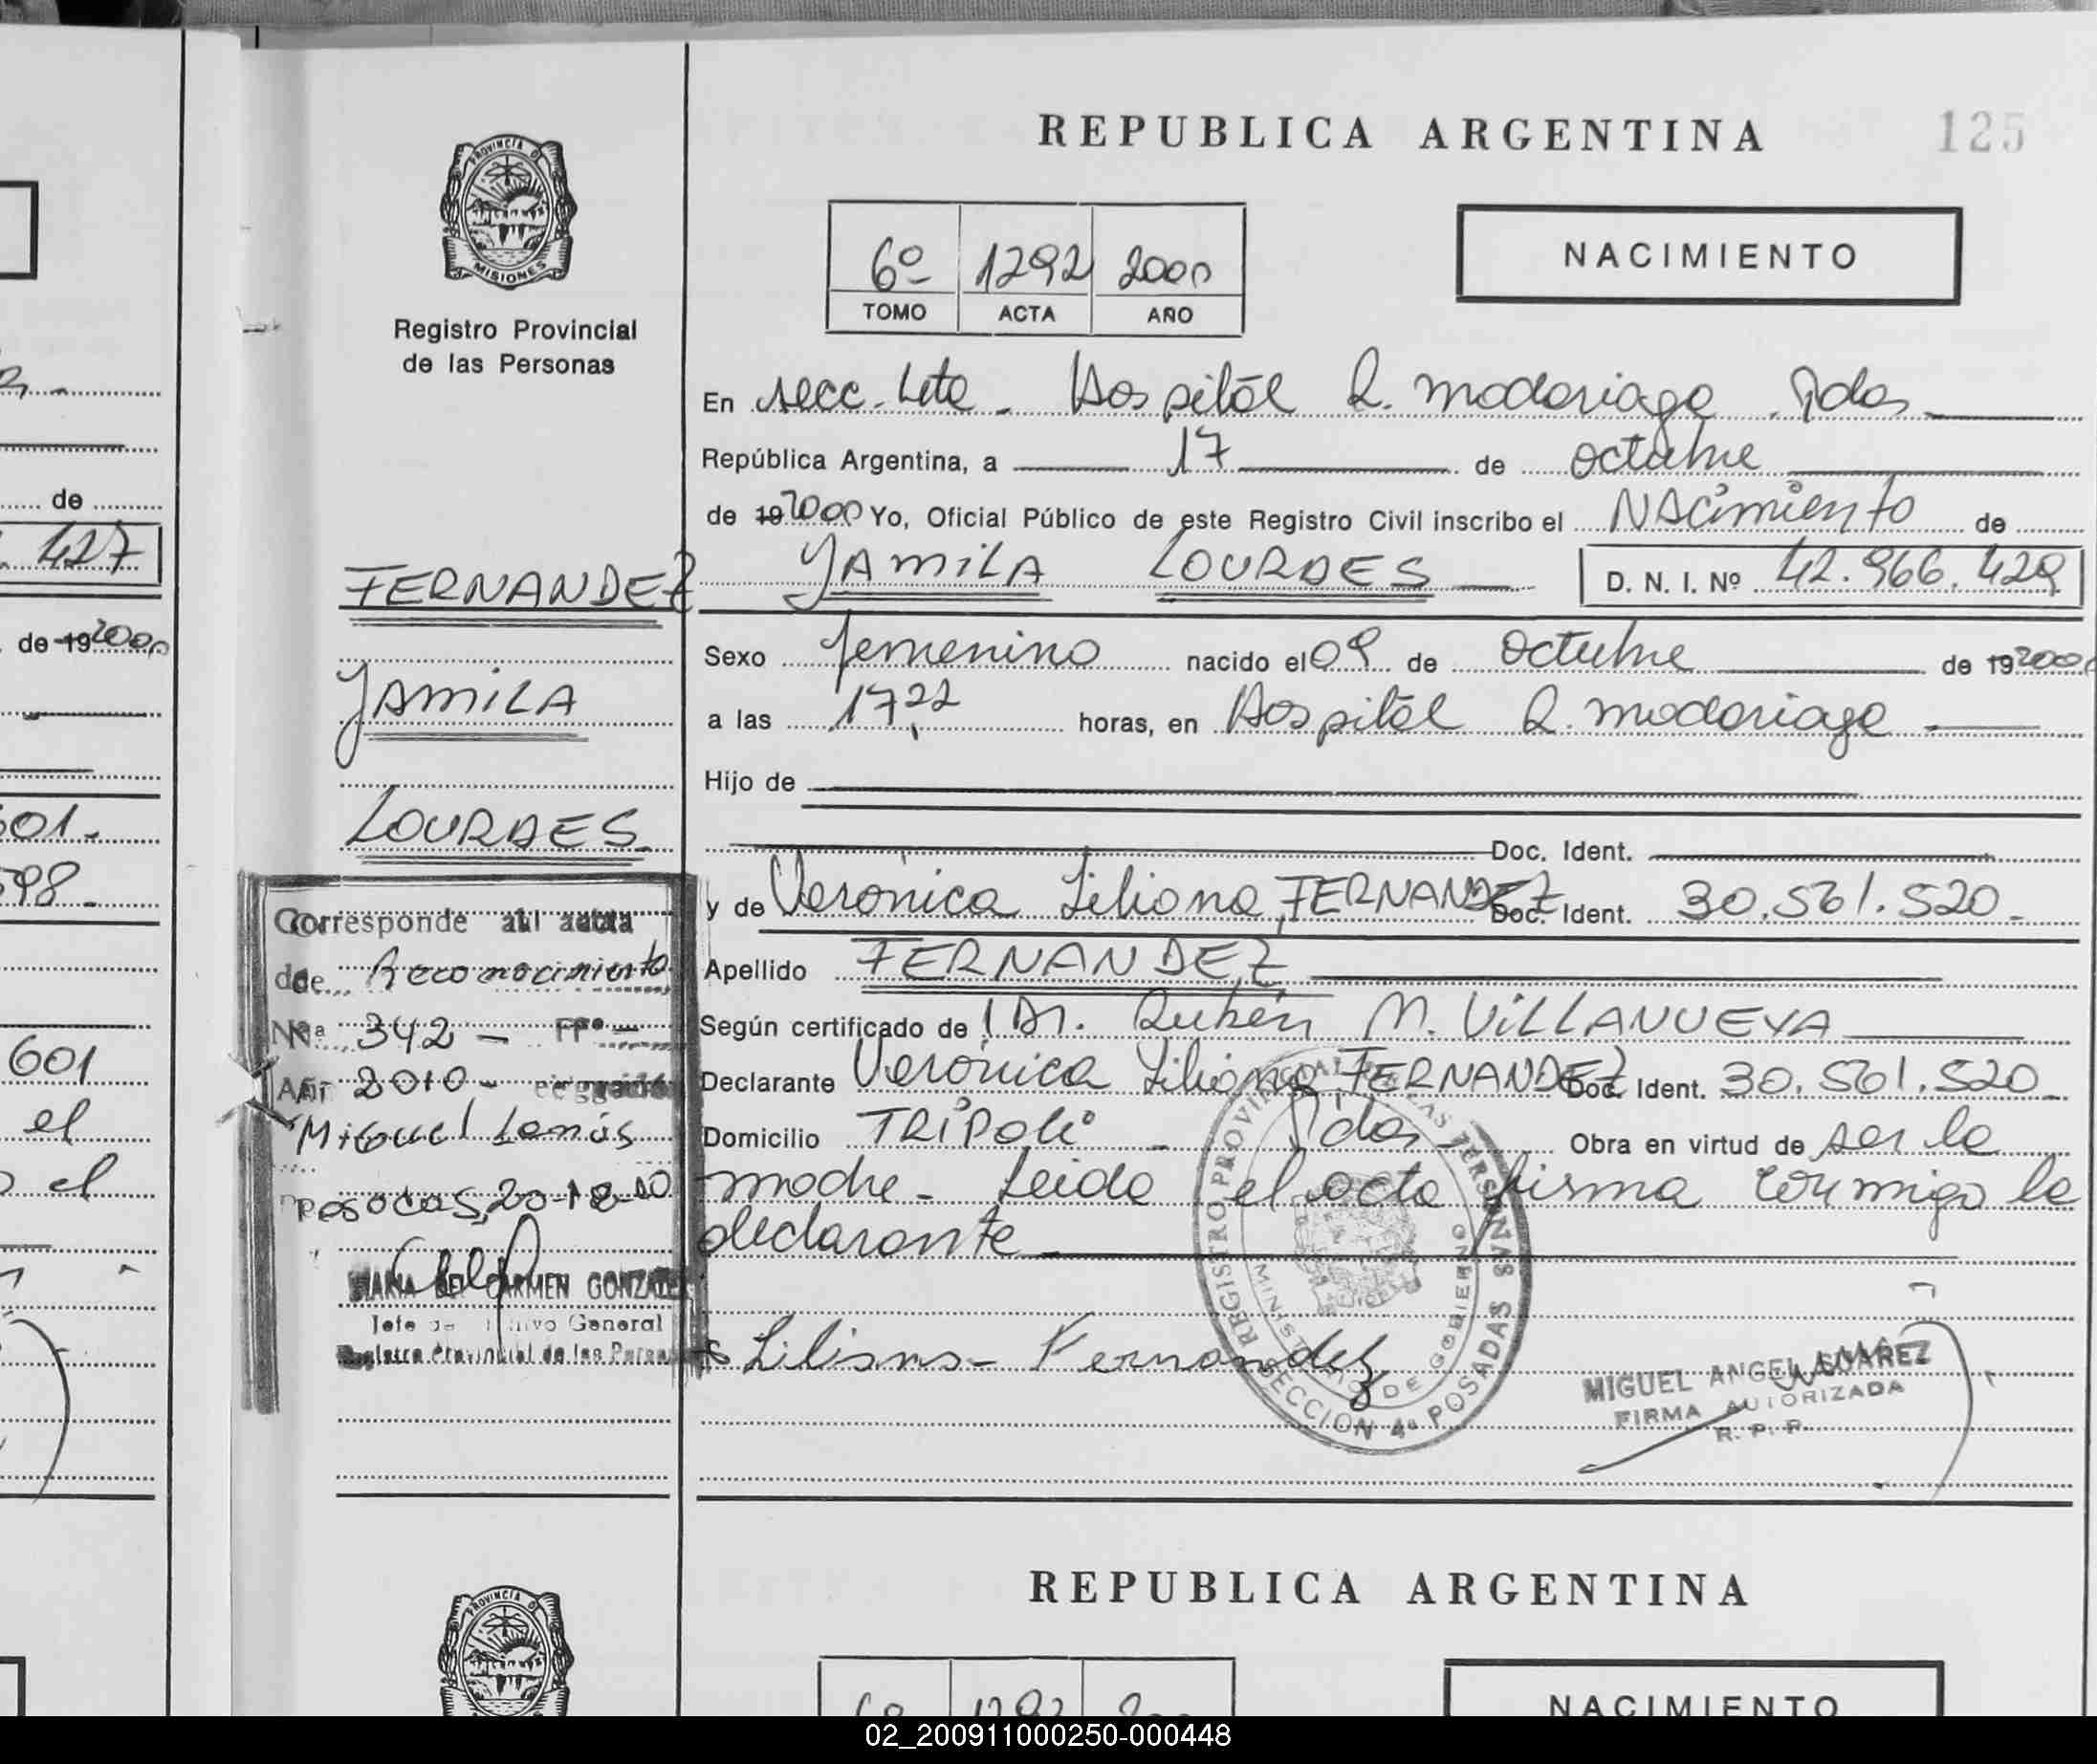 REPUBLICA ARGENTINA 125
PROVINCIA DE
MISIONES
Registro Provincial
de las Personas
6º 1292 2000
TOMO ACTA AÑO
NACIMIENTO
En secc. 4ta. Hospital R. Madariaga. Pdas
República Argentina, a 17 de octubre
de 192000 Yo, Oficial Público de este Registro Civil inscribo el NAcimiento de
FERNANDEZ YAMILA LOURDES D. N. I. Nº 42.966.429
Sexo femenino nacido el 09 de octubre de 192000
a las 17,22 horas, en Hospital R. Madariaga.
Hijo de
Doc. Ident.
y de Veronica Liliana FERNANDEZ Doc. Ident. 30.561.520.
Apellido FERNANDEZ
Según certificado de Dr. Rubén M. VILLANUEVA
Declarante Verónica Liliana FERNANDEZ Doc. Ident. 30.561.520.
Domicilio TRIPOLI - Pdas Obra en virtud de ser la
madre - Leida el acta firma conmigo la
declarante
Liliana Fernandez
REGISTRO PROVINCIAL DE LAS PERSONAS
MINISTERIO DE GOBIERNO
SECCION 4ª POSADAS
MIGUEL ANGEL SUAREZ
FIRMA AUTORIZADA
R. P. P.
YAMILA
LOURDES
Corresponde al acta
de Reconocimiento
Nº 342 - Fº -
Año 2010 -
Miguel Lanús
Posadas, 20-12-10
MARIA DEL CARMEN GONZALEZ
Jefe de Archivo General
Registro Provincial de las Personas
de
427
de 192000
501.
598.
601
el
el
REPUBLICA ARGENTINA
PROVINCIA DE
NACIMIENTO
02_200911000250-000448